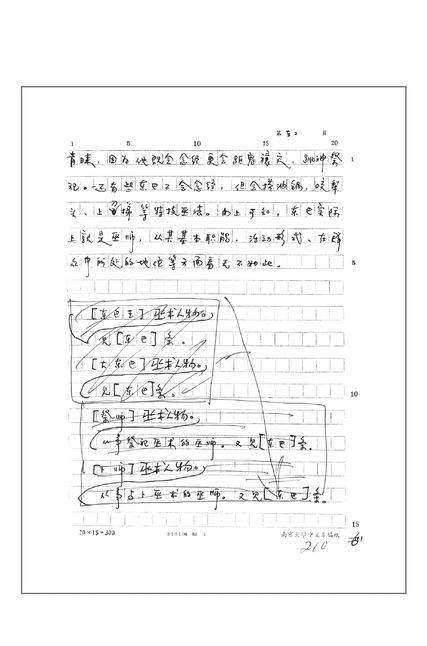 第52页
1 5 10 15 20
青睐，因为他既会念经更会跳鬼禳灾，跳神祭
祀。还有些东巴不会念经，但会捞油锅，咬犁
头、上刀梯等特技巫法。由上可知，东巴实际
上就是巫师，从其基本职能、活动形式、在群
众中所处的地位等方面看无不如此。
1
5
10
15
[东巴王] 巫术人物。
见[东巴]条。
[大东巴] 巫术人物。
见[东巴]条。
[祭师] 巫术人物。
从事祭祀巫术的巫师。又见[东巴]条。
[卜师] 巫术人物。
从事占卜巫术的巫师。又见[东巴]条。
20×15=300
南京大学中文系稿纸
210